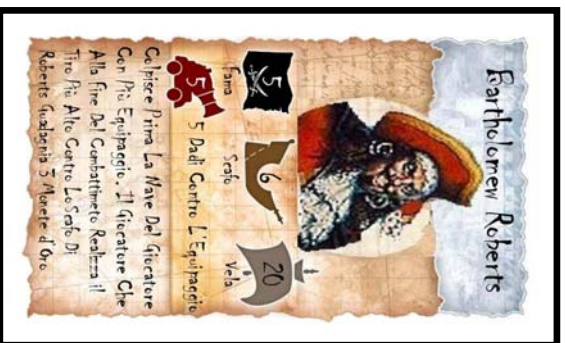 Bartholomew Roberts
5
6
20
Fama
Scafo
Vela
5
5 Dadi Contro L'Equipaggio
Colpisce Prima La Nave Del Giocatore
Con Più Equipaggio. Il Giocatore Che
Alla Fine Del Combattimeto Realizza il
Tiro Più Alto Contro Lo Scafo Di
Roberts Guadagnia 3 Monete d'Oro